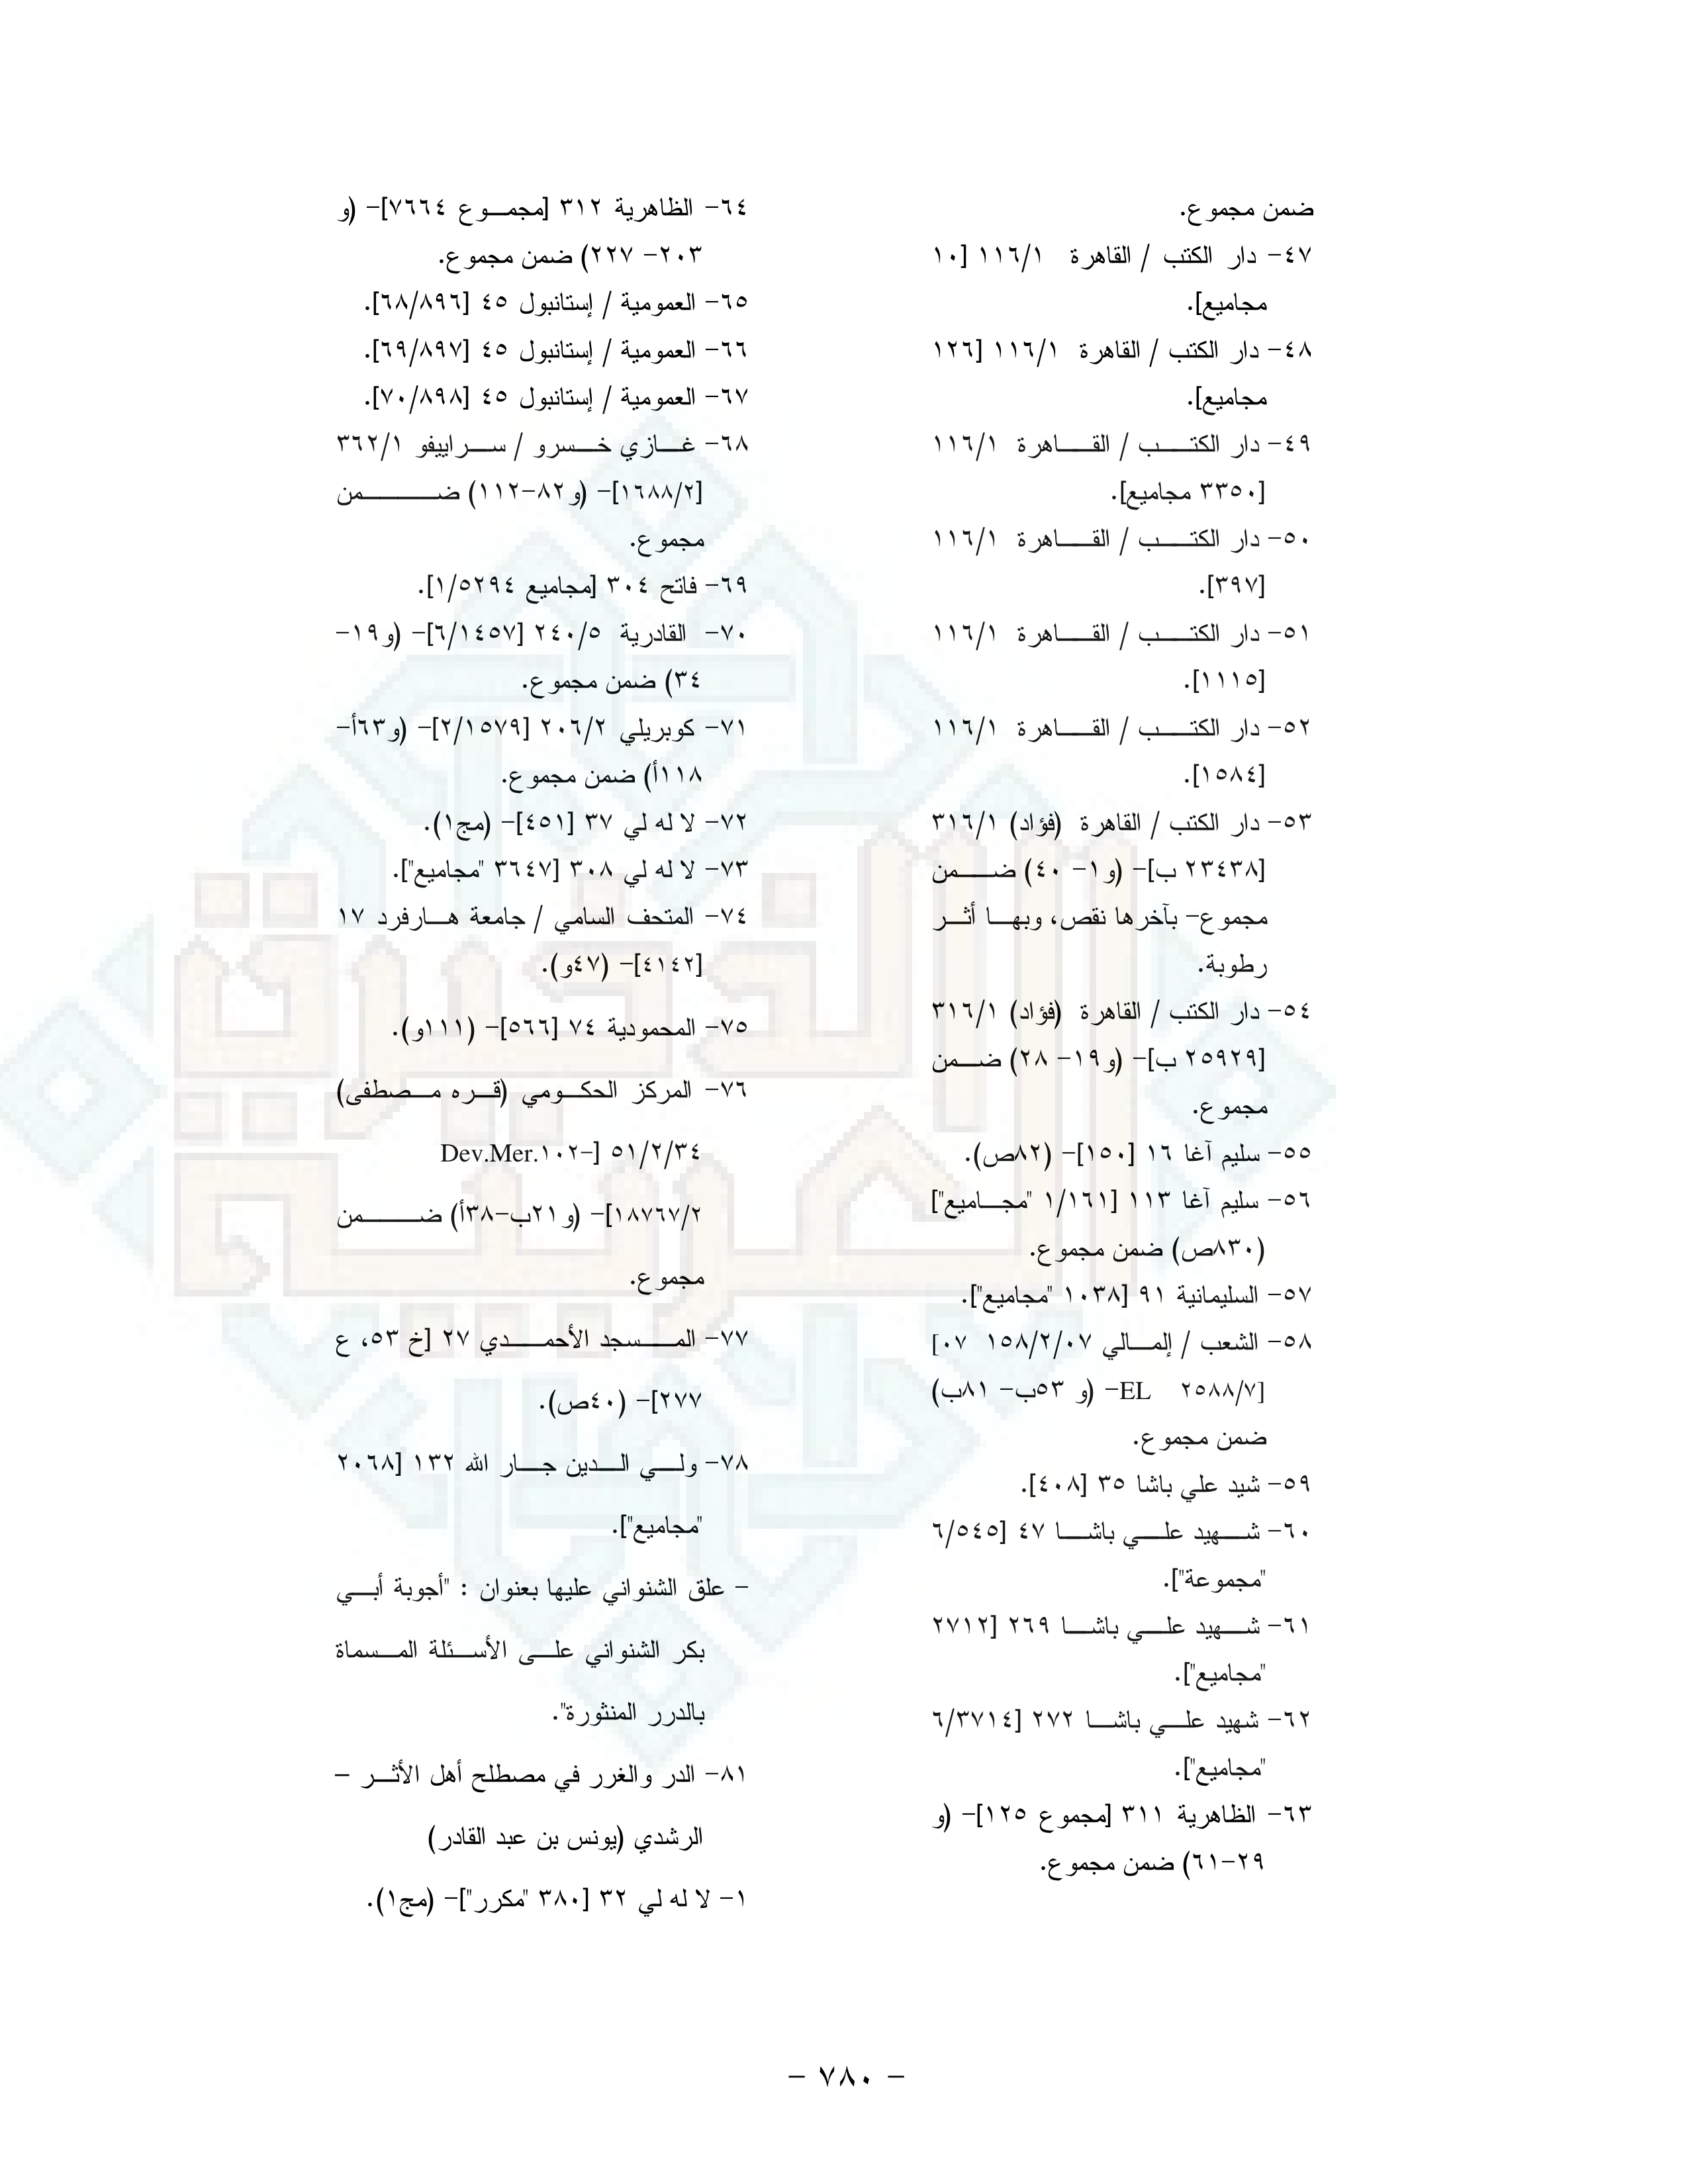 ضمن مجموع.
٤٧- دار الكتب / القاهرة ١١٦/١ [١٠
مجاميع].
٤٨- دار الكتب / القاهرة ١١٦/١ [١٢٦
مجاميع].
٤٩- دار الكتب / القاهرة ١١٦/١
[٣٣٥٠ مجاميع].
٥٠- دار الكتب / القاهرة ١١٦/١
[٣٩٧].
٥١- دار الكتب / القاهرة ١١٦/١
[١١١٥].
٥٢- دار الكتب / القاهرة ١١٦/١
[١٥٨٤].
٥٣- دار الكتب / القاهرة (فؤاد) ٣١٦/١
[٢٣٤٣٨ ب]- (و١- ٤٠) ضمن
مجموع- بآخرها نقص، وبها أثر
رطوبة.
٥٤- دار الكتب / القاهرة (فؤاد) ٣١٦/١
[٢٥٩٢٩ ب]- (و١٩- ٢٨) ضمن
مجموع.
٥٥- سليم آغا ١٦ [١٥٠]- (٨٢ص).
٥٦- سليم آغا ١١٣ [١/١٦١ "مجاميع"]
(٨٣٠ص) ضمن مجموع.
٥٧- السليمانية ٩١ [١٠٣٨ "مجاميع"].
٥٨- الشعب / إلمالي ١٥٨/٢/٠٧ ٠٧]
[٢٥٨٨/٧ EL- (و ٥٣ب- ٨١ب)
ضمن مجموع.
٥٩- شيد علي باشا ٣٥ [٤٠٨].
٦٠- شهيد علي باشا ٤٧ [٦/٥٤٥
"مجموعة"].
٦١- شهيد علي باشا ٢٦٩ [٢٧١٢
"مجاميع"].
٦٢- شهيد علي باشا ٢٧٢ [٦/٣٧١٤
"مجاميع"].
٦٣- الظاهرية ٣١١ [مجموع ١٢٥]- (و
٢٩-٦١) ضمن مجموع.
٦٤- الظاهرية ٣١٢ [مجموع ٧٦٦٤]- (و
٢٠٣- ٢٢٧) ضمن مجموع.
٦٥- العمومية / إستانبول ٤٥ [٦٨/٨٩٦].
٦٦- العمومية / إستانبول ٤٥ [٦٩/٨٩٧].
٦٧- العمومية / إستانبول ٤٥ [٧٠/٨٩٨].
٦٨- غازي خسرو / سراييفو ٣٦٢/١
[١٦٨٨/٢]- (و٨٢-١١٢) ضمن
مجموع.
٦٩- فاتح ٣٠٤ [مجاميع ١/٥٢٩٤].
٧٠- القادرية ٢٤٠/٥ [٦/١٤٥٧]- (و١٩-
٣٤) ضمن مجموع.
٧١- كوبريلي ٢٠٦/٢ [٢/١٥٧٩]- (و٦٣أ-
١١٨أ) ضمن مجموع.
٧٢- لا له لي ٣٧ [٤٥١]- (مج١).
٧٣- لا له لي ٣٠٨ [٣٦٤٧ "مجاميع"].
٧٤- المتحف السامي / جامعة هارفرد ١٧
[٤١٤٢]- (٤٧و).
٧٥- المحمودية ٧٤ [٥٦٦]- (١١١و).
٧٦- المركز الحكومي (قره مصطفى)
٥١/٢/٣٤ [-Dev.Mer.١٠٢
١٨٧٦٧/٢]- (و٢١ب-٣٨أ) ضمن
مجموع.
٧٧- المسجد الأحمدي ٢٧ [خ ٥٣، ع
٢٧٧]- (٤٠ص).
٧٨- ولي الدين جار الله ١٣٢ [٢٠٦٨
"مجاميع"].
- علق الشنواني عليها بعنوان : "أجوبة أبي
بكر الشنواني على الأسئلة المسماة
بالدرر المنثورة".
٨١- الدر والغرر في مصطلح أهل الأثر –
الرشدي (يونس بن عبد القادر)
١- لا له لي ٣٢ [٣٨٠ "مكرر"]- (مج١).
- ٧٨٠ -
الذخيرة
العربية